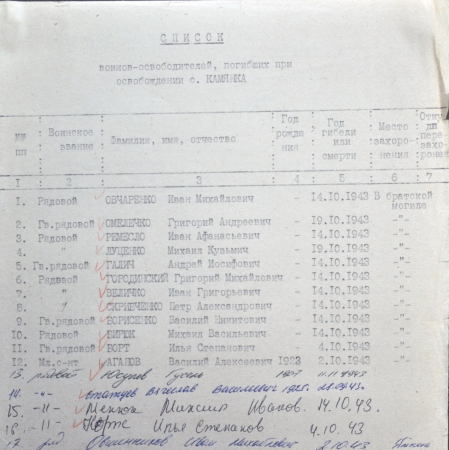 СПИСОК
воинов-освободителей, погибших при
освобождении с. КАМЯНКА
№№ пп : Воинское звание : Фамилия, имя, отчество : Год рожде ния : Год гибели или смерти : Место захоро- нения : Отку да пере- захо- ронен
1 : 2 : 3 : 4 : 5 : 6 : 7
1. Рядовой ОВЧАРЕНКО Иван Михайлович - 14.10.1943 В братской могиле
2. Гв.рядовой ОМЕЛЕЧКО Григорий Андреевич - 19.10.1943 -"-
3. Рядовой РЕМЕСЛО Иван Афанасьевич - 14.10.1943 -"-
4. " ЛУЦЕНКО Михаил Кузьмич - 19.10.1943 -"-
5. Гв.рядовой ГАЛИЧ Андрей Иосифович - 14.10.1943 -"-
6. Рядовой ГОРОДИНСКИЙ Григорий Михайлович - 14.10.1943 -"-
7. " ВЕЛИЧКО Иван Григорьевич - 14.10.1943 -"-
8. " СКРИПЧЕНКО Петр Александрович - 14.10.1943 -"-
9. Гв.рядовой БОРИСЕНКО Василий Никитович - 14.10.1943 -"-
10. Рядовой БИРЮК Михаил Васильевич - 14.10.1943 -"-
11. Гв.рядовой БОРТ Илья Степанович - 4.10.1943 -"-
12. Мл.с-нт АГАПОВ Василий Алексеевич 1923 2.10.1943 -"-
13. рядовой 11.11.1943
14. -"- Вячеслав Васильевич 1925
15. -"- Михаил Иванов. 14.10.43.
16. -"- Илья Степанов 4.10.43.
17. ряд Овчинников 2.10.43